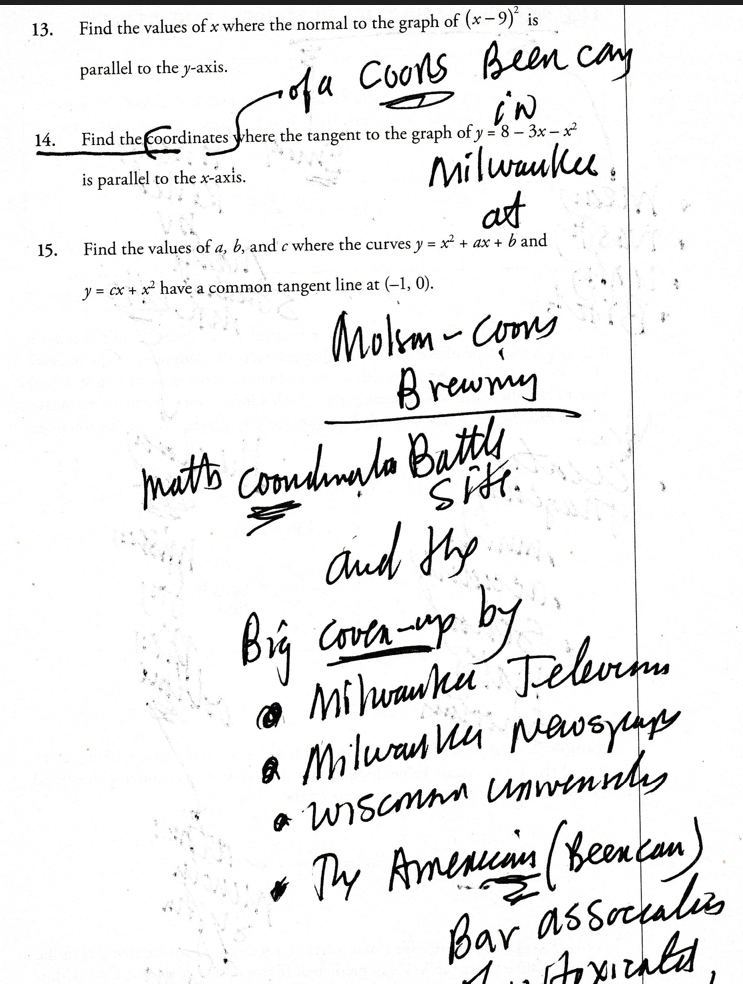 13. Find the values of x where the normal to the graph of (x – 9)² is
parallel to the y-axis.
of a Coors Beer can
in
14. Find the coordinates where the tangent to the graph of y = 8 – 3x – x²
is parallel to the x-axis.
Milwaukee.
at
15. Find the values of a, b, and c where the curves y = x² + ax + b and
y = cx + x² have a common tangent line at (–1, 0).
Molson - Coors
Brewing
math coordinate Battle
Site.
and the
Big cover-up by
Milwaukee Television
Milwaukee Newspaper
Wisconsin University
The American (Beer can)
Bar associates